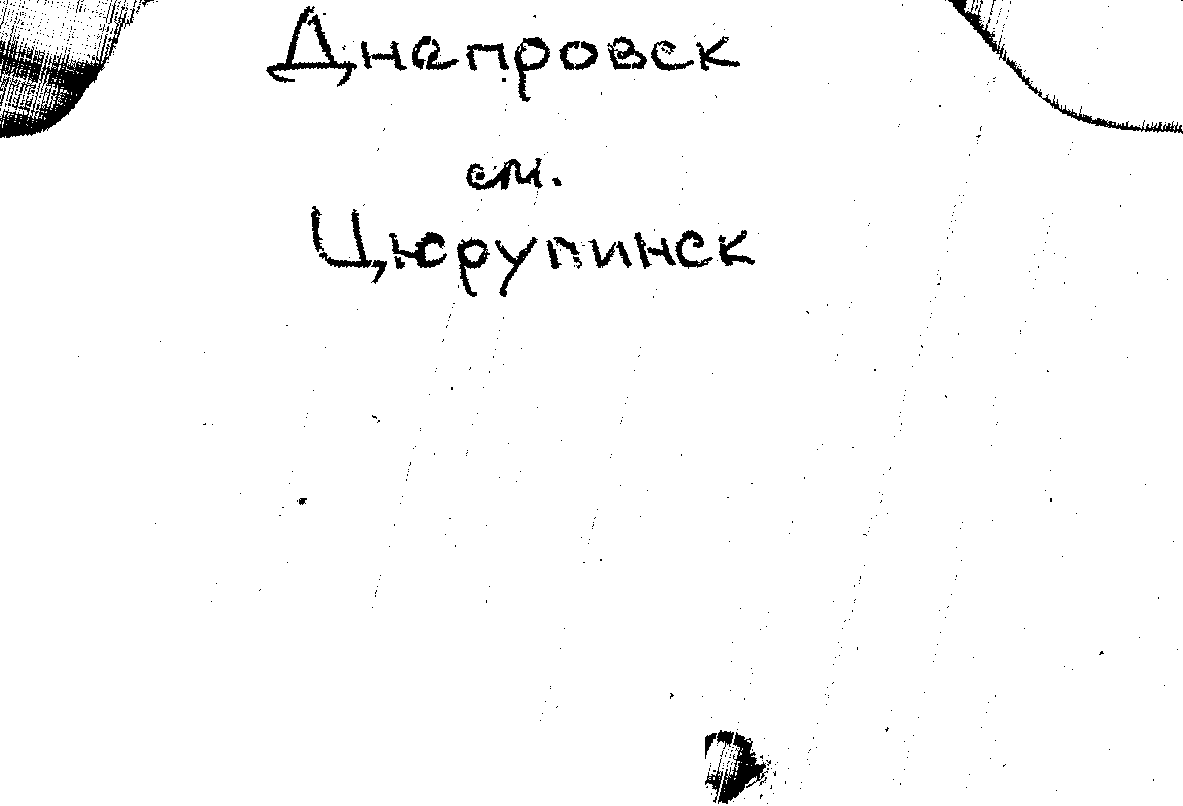 Днепровск
см.
Цюрупинск